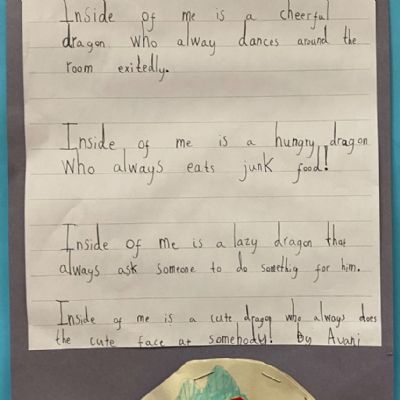 Inside of me is a cheerful
dragon who alway dances around the
room exitedly.
Inside of me is a hungry dragon
Who always eats junk food!
Inside of me is a lazy dragon that
always ask someone to do somethig for him.
Inside of me is a cute dragon who always does
the cute face at somebody! by Avani